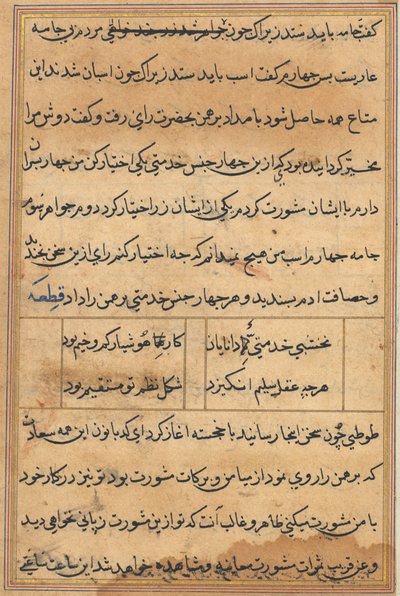 کفت جامه باید ستد زیراک چون جواهر شد زر خذ خواهی مردم بی جامه
عاریت بس چهارم کفت اسب باید ستد زیراک چون اسبان شدند این
متاع همه حاصل شود بامداد برهمن بحضرت رای رفت و کفت دوش مرا
مخیر کردانیده بودی کی ازین چهار جنس خدمتی یکی اختیار کن من چهار پسران
دارم با ایشان مشورت کردم یکی از ایشان زر اختیار کرد دوم جواهر سوم
جامه چهارم اسب من هیچ نمیدانم که جه اختیار کنم رای ازین سخن بخندید
و حصافت او بسندید و هر چهار جنس خدمتی برهمن را داد قطعه
نخشبی خدمتی دانایان کارها هوشیار کم وخیم بود
هرچه عقل سلیم انکیزد شکل نظم تو مستقیم بود
طوطی چون سخن اینجا رسانید با خجسته اغاز کرد ای کدبانو این همه سعادت
که برهمن را روی نمود از میامن و برکات مشورت بود تو نیز در کار خود
با من مشورت میکنی ظاهر و غالب آنست که تو ازین مشورت زیانی نخواهی دید
و عن قریب ثمرات مشورت معاینه و مشاهده خواهد شد این ساعت ساعتی